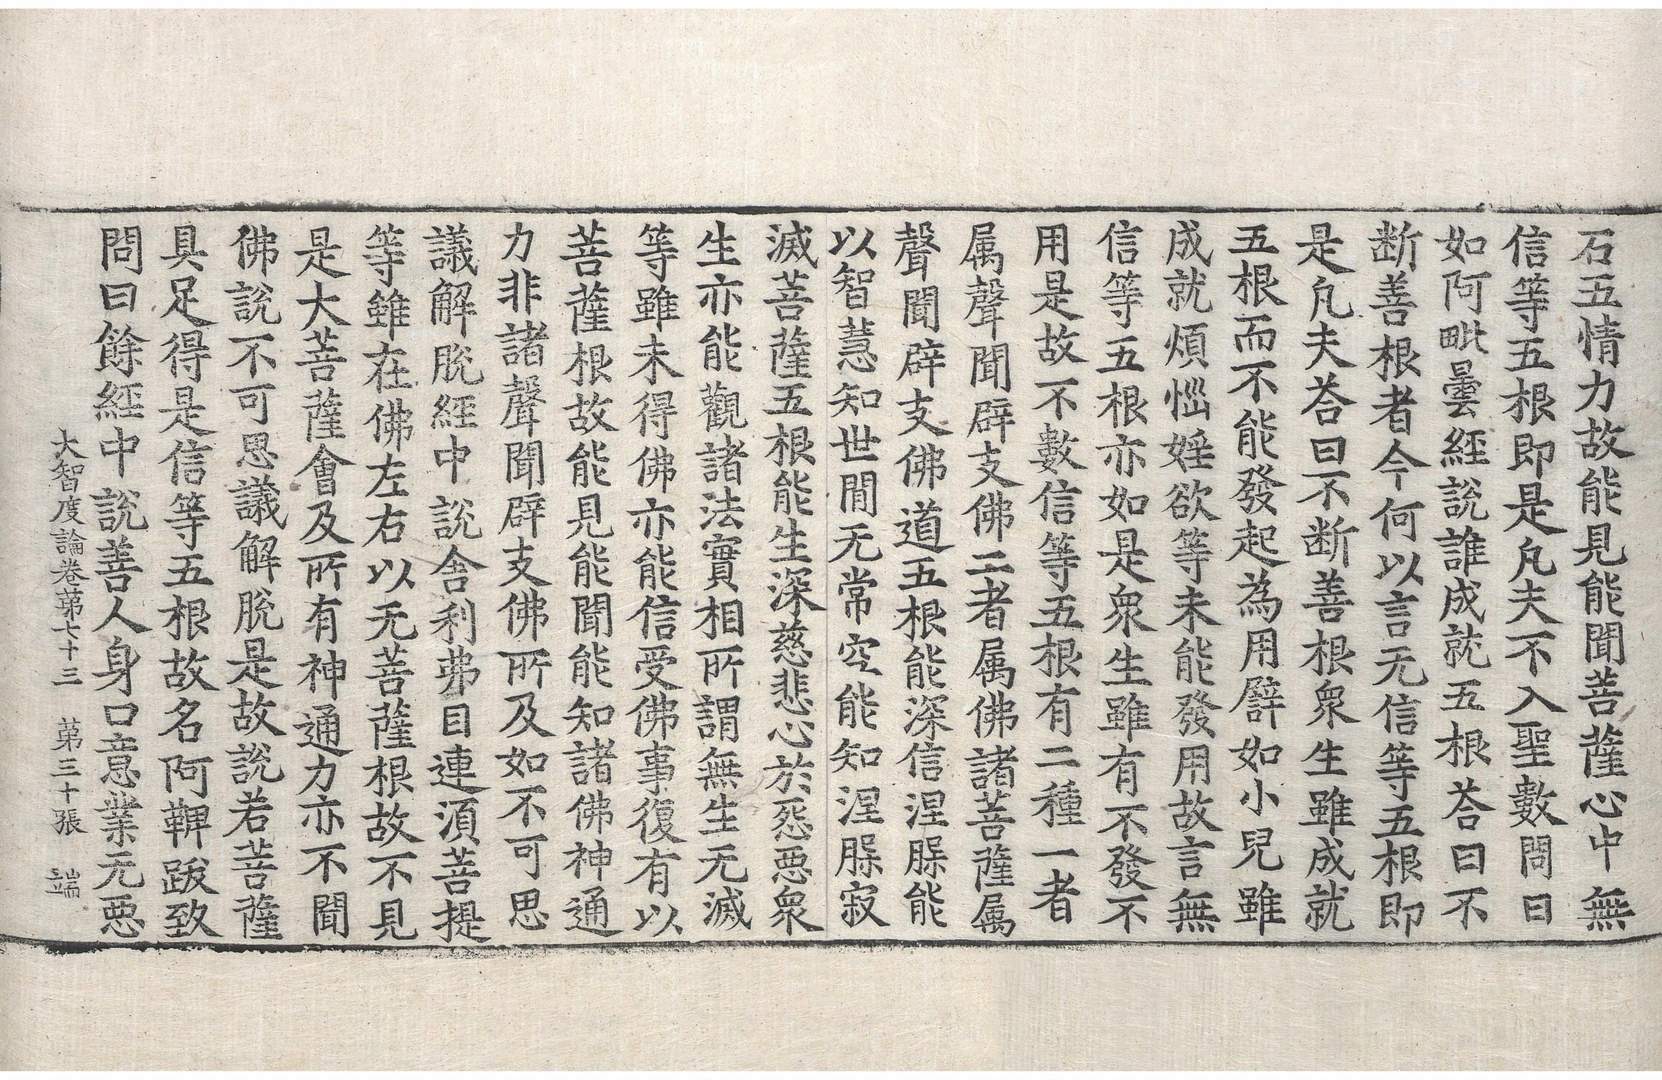 石五情力故能見能聞菩薩心中無
信等五根即是凡夫不入聖數問曰
如阿毗曇經說誰成就五根荅曰不
断善根者今何以言无信等五根即
是凡夫荅曰不断善根衆生雖成就
五根而不能發起為用譬如小兒雖
成就煩惱婬欲等未能發用故言無
信等五根亦如是衆生雖有不發不
用是故不數信等五根有二種一者
属聲聞辟支佛二者属佛諸菩薩属
聲聞辟支佛道五根能深信涅槃能
以智慧知世閒无常空能知涅槃寂
滅菩薩五根能生深慈悲心於惡惡衆
生亦能觀諸法實相所謂無生无滅
等雖未得佛亦能信受佛事復有以
菩薩根故能見能聞能知諸佛神通
力非諸聲聞辟支佛所及如不可思
議解脫經中說舍利弗目連湏菩提
等雖在佛左右以无菩薩根故不見
是大菩薩會及所有神通力亦不聞
佛說不可思議解脫是故說若菩薩
具足得是信等五根故名阿鞞跋致
問曰餘經中說善人身口意業无惡
大智度論卷苐七十三 苐三十張 端